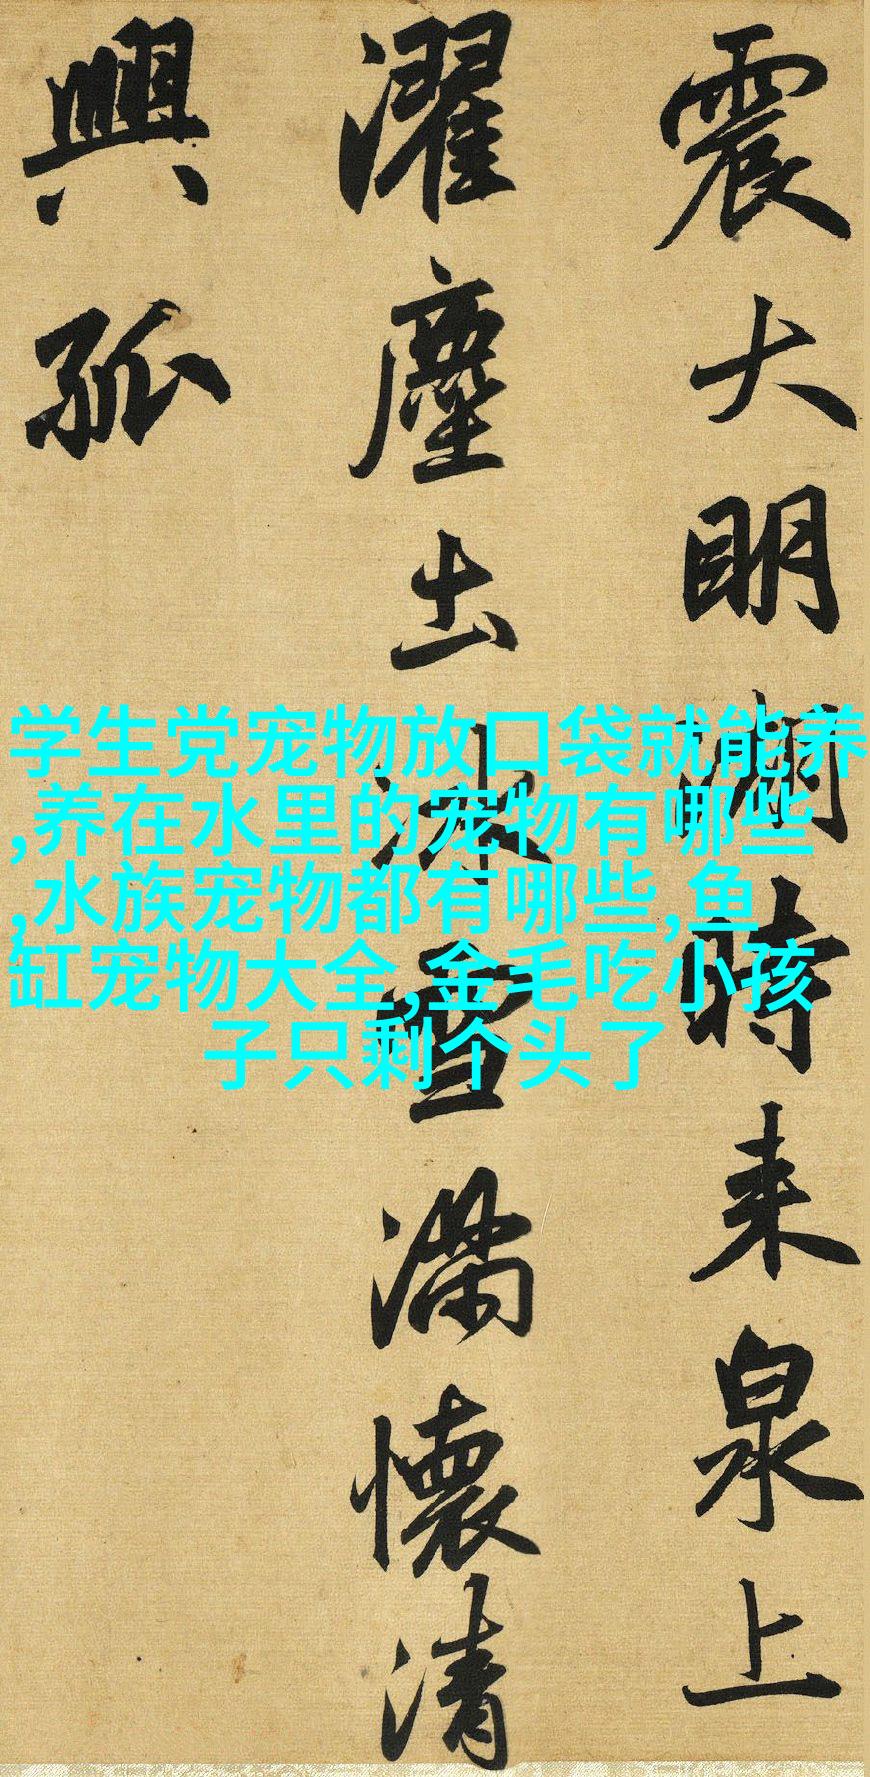 震大明湖時来泉上
濯塵出冰雪滿懷清
興孤
学生党宠物放口袋就能养
,养在水里的宠物有哪些
,水族宠物都有哪些,鱼
缸宠物大全,金毛吃小孩
子只剩个头了